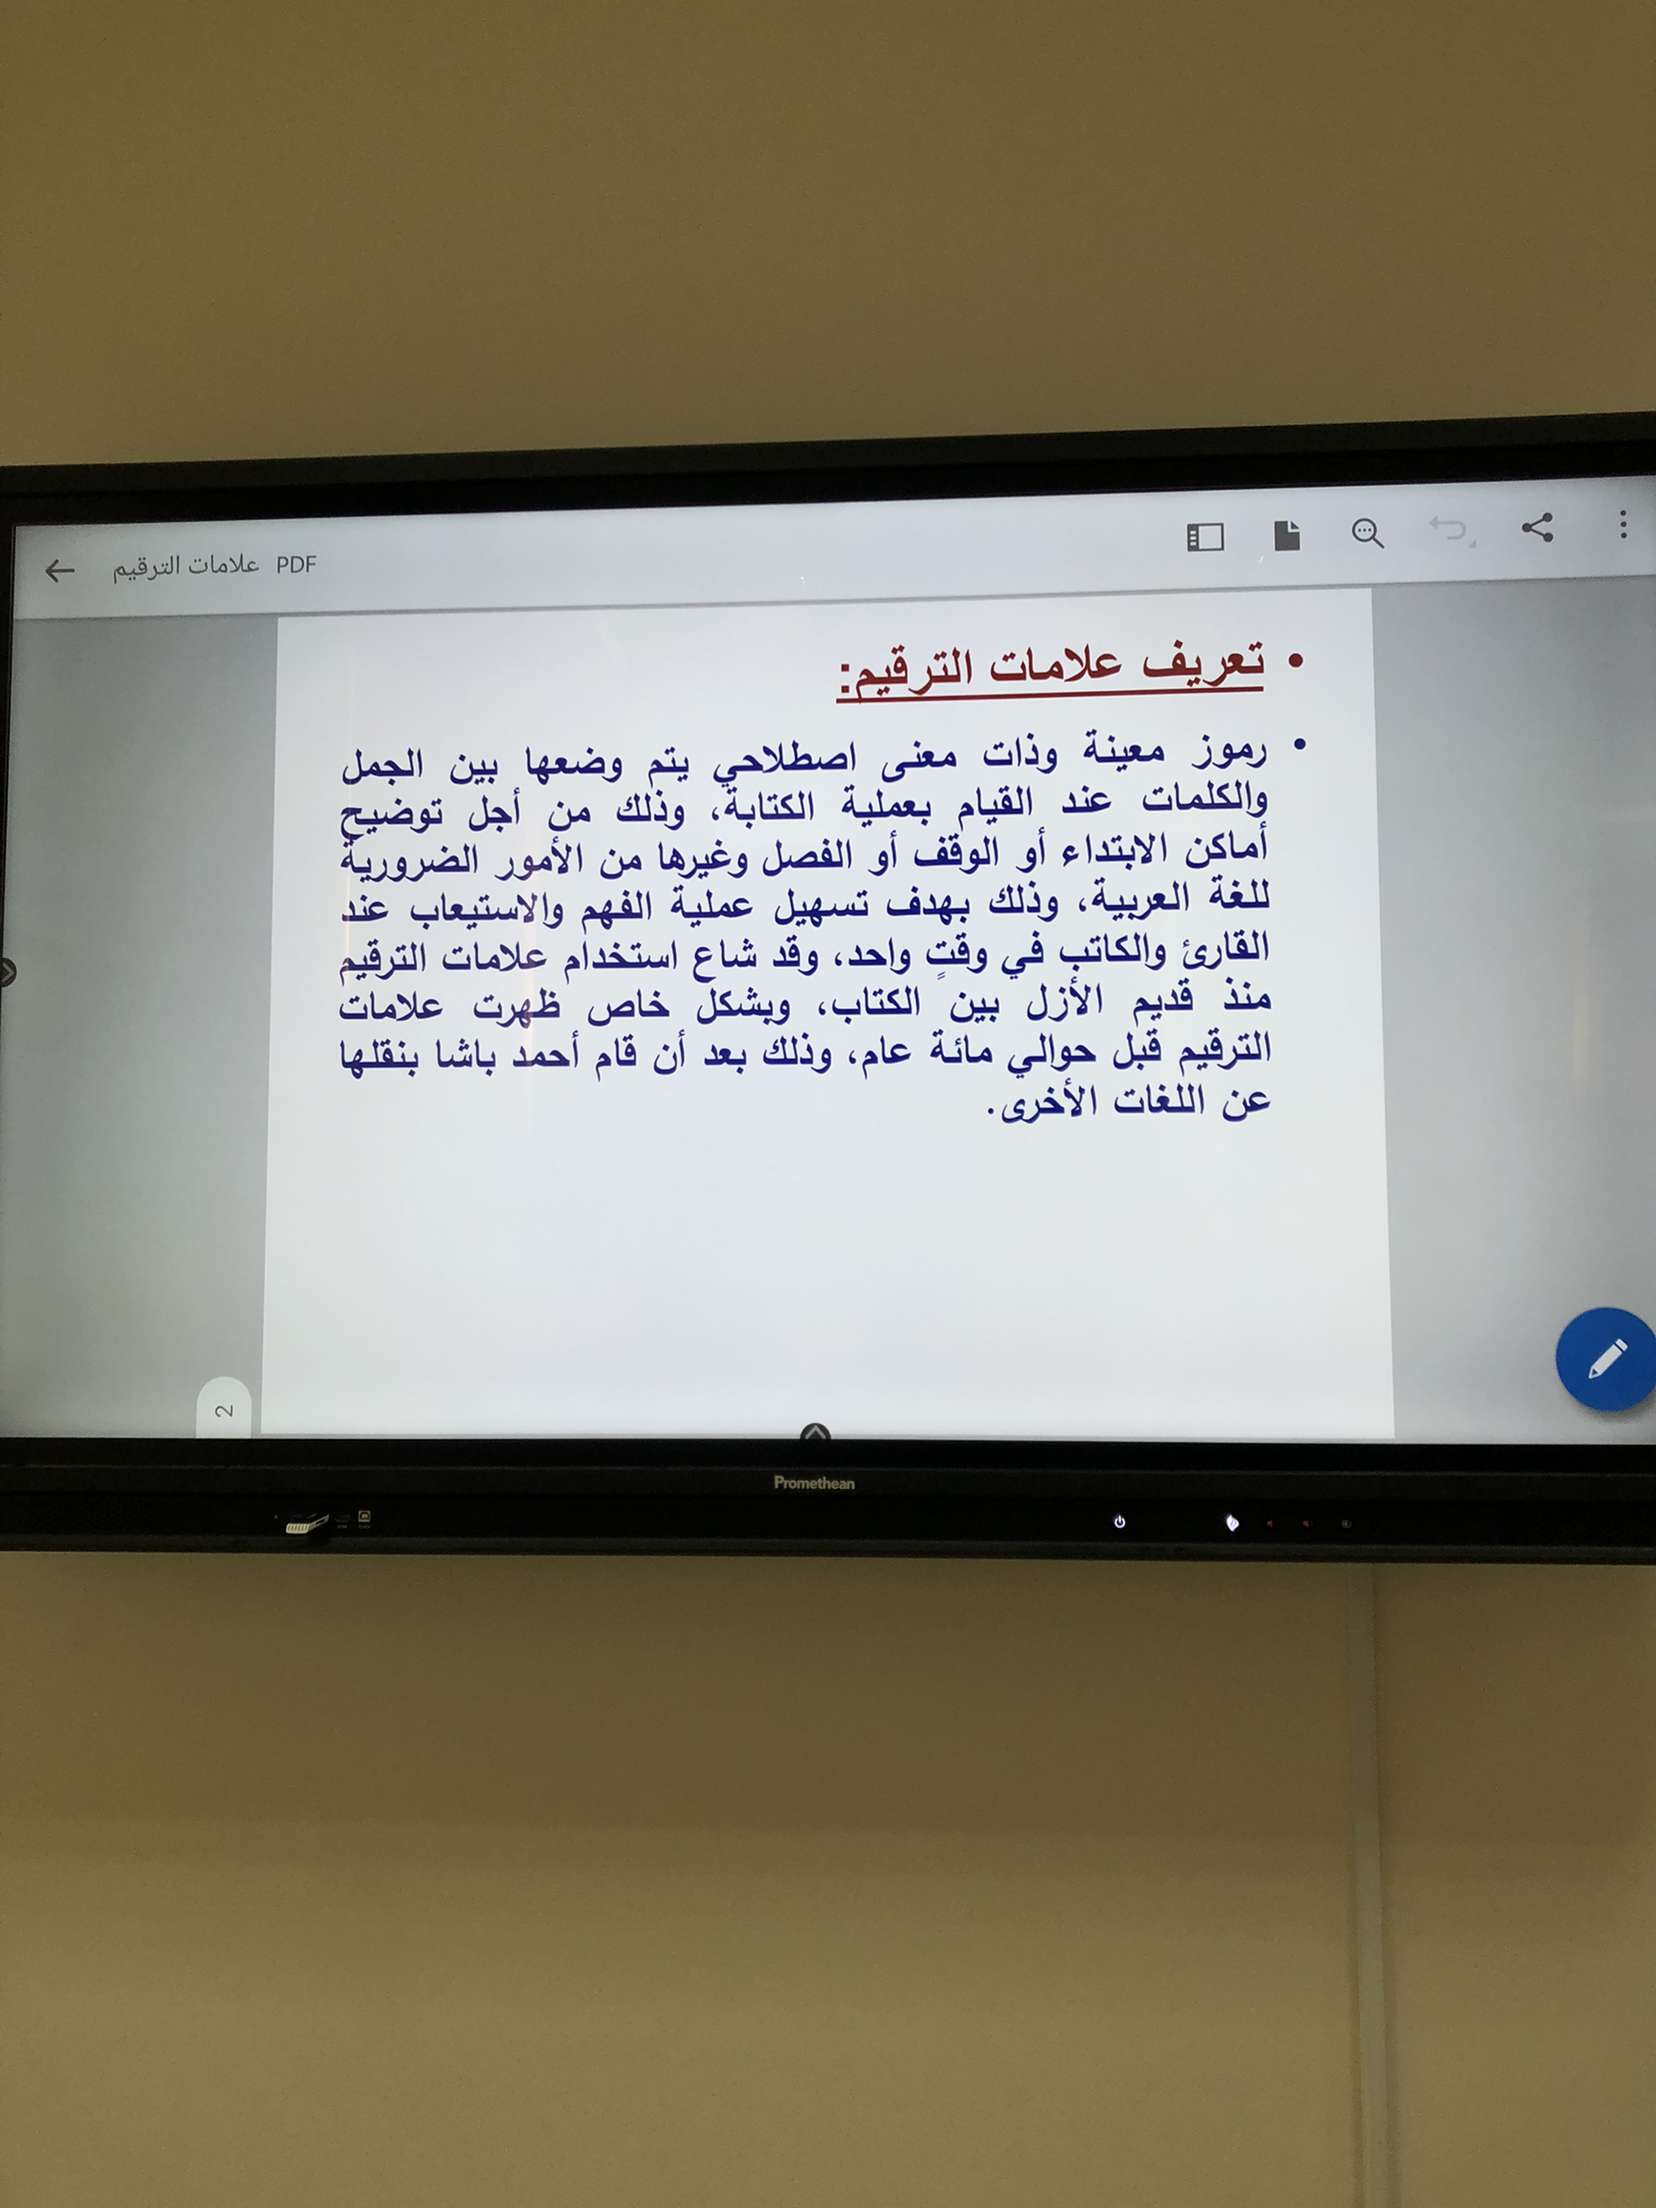 علامات الترقيم PDF
• تعريف علامات الترقيم:
• رموز معينة وذات معنى اصطلاحي يتم وضعها بين الجمل
والكلمات عند القيام بعملية الكتابة، وذلك من أجل توضيح
أماكن الابتداء أو الوقف أو الفصل وغيرها من الأمور الضرورية
للغة العربية، وذلك بهدف تسهيل عملية الفهم والاستيعاب عند
القارئ والكاتب في وقتٍ واحد، وقد شاع استخدام علامات الترقيم
منذ قديم الأزل بين الكتاب، وبشكل خاص ظهرت علامات
الترقيم قبل حوالي مائة عام، وذلك بعد أن قام أحمد باشا بنقلها
عن اللغات الأخرى.
2
Promethean